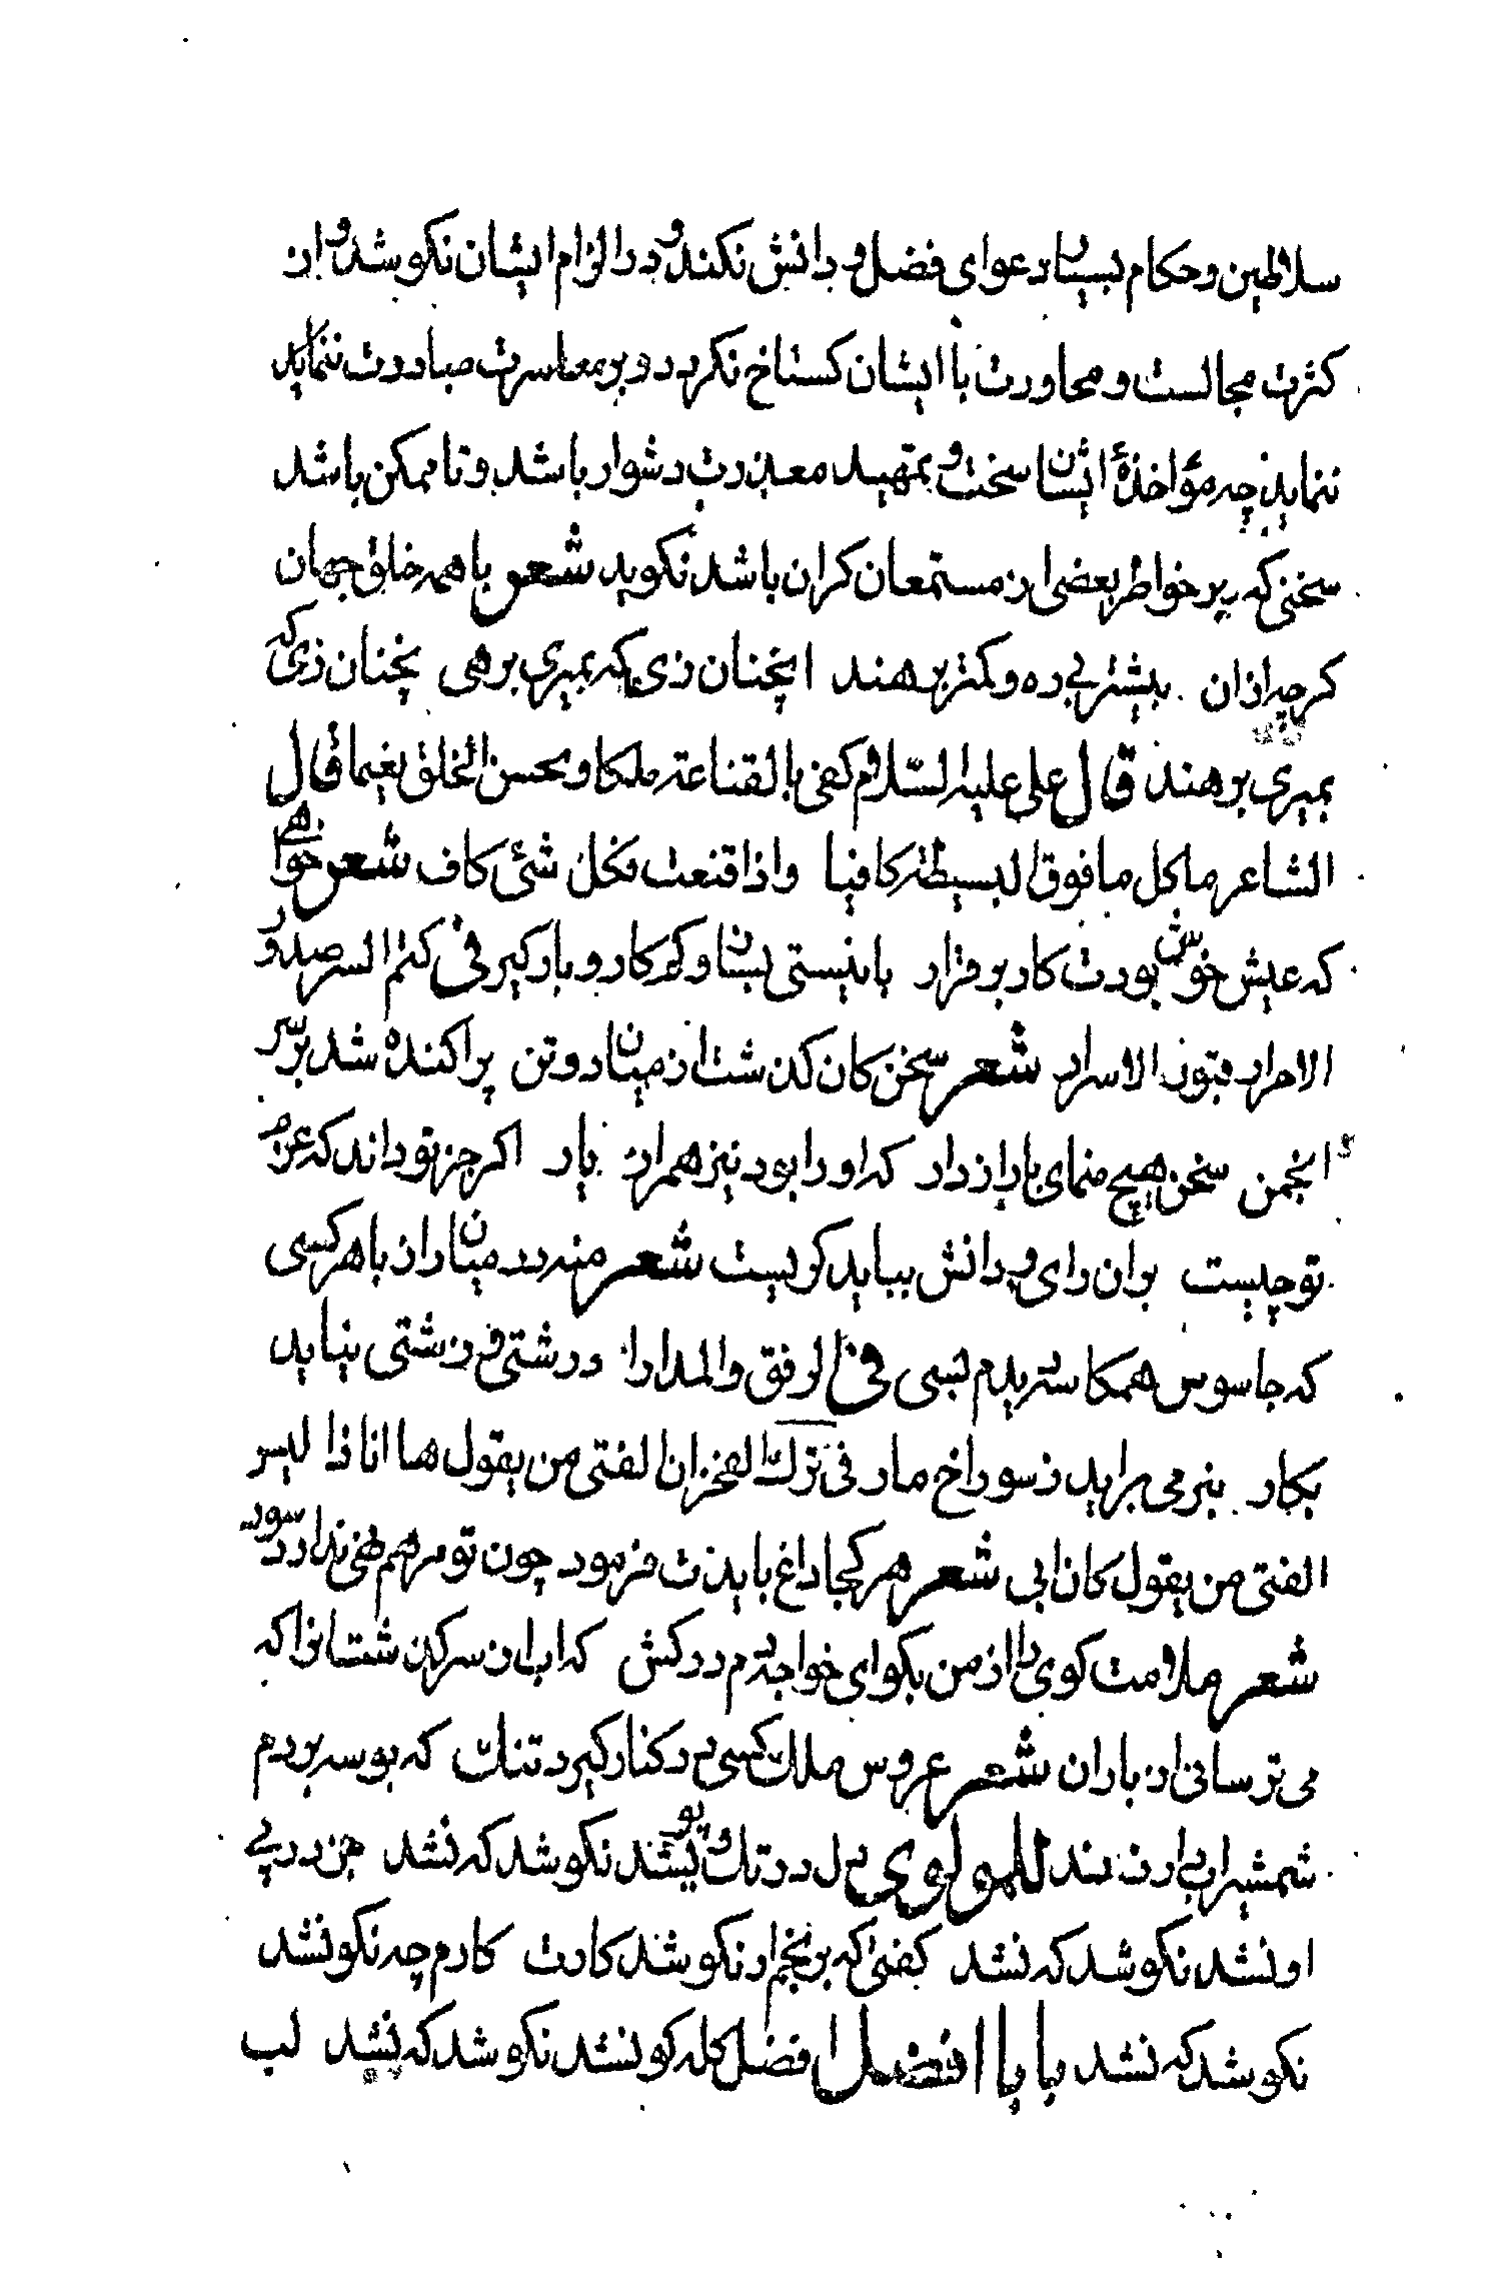 سلاطین و حکام بسیار دعوای فضل و دانش نکند و در الزام ایشان نکوشد و از
کثرت مجالست و محاورت با ایشان کستاخ نکردد و بر معاسرت مبادرت ننماید
ننماید چه مؤاخذهٔ ایشان سخت و تمهید معذرت دشوار باشد و تا ممکن باشد
سخنی که بر خواطر بعضی از مستمعان کران باشد نکوید شعر با همه خلق جهان
کرچه ازان بیشتر بی ره و کمتر برهند انچنان زی که بمیری برهی نچنان زی که
بمیری برهند قال علی علیه السلام کفی بالقناعة ملکا و بحسن الخلق نعیما قال
الشاعر ما کل ما فوق البسیطة کافیا و اذا قنعت فکل شئ کاف شعر خواهی
که عیش خوش بودت کار برقرار با نیستی بساز و کم کار و بار کیر فی کتم السر صدور
الاحرار قبور الاسرار شعر سخن کان کذشت از میان دو تن پراکنده شد بر سر
انجمن سخن هیچ منمای با رازدار که او را بود نیز همراز یار اکر جز تو داند که عزم
تو چیست بران رای و دانش بباید کریست شعر منه در میان راز با هر کسی
که جاسوس همکاسه دیدم بسی فی الرفق والمدارا درشتی و زشتی نیاید
بکار بنرمی براید ز سوراخ مار فی ترک الفخر ان الفتی من یقول ها انا ذا لیس
الفتی من یقول کان ابی شعر هر کجا داغ بایدت فرمود چون تو مرهم نهی ندارد سود
شعر ملامت کوی را از من بکو ای خواجه دم درکش که اب از سر کذشت انرا که
می ترسانی از باران شعر عروس ملک کسی در کنار کیرد تنک که بوسه بر دم
شمشیر ابدار زند للمولوی دل در تک و پو نشد نکو شد که نشد جز در پی
او نشد نکو شد که نشد کفتی که برنجم ار نکو شد کارت کارم چه نکو نشد
نکو شد که نشد بابا افضل افضل کله کو نشد نکو شد که نشد لب